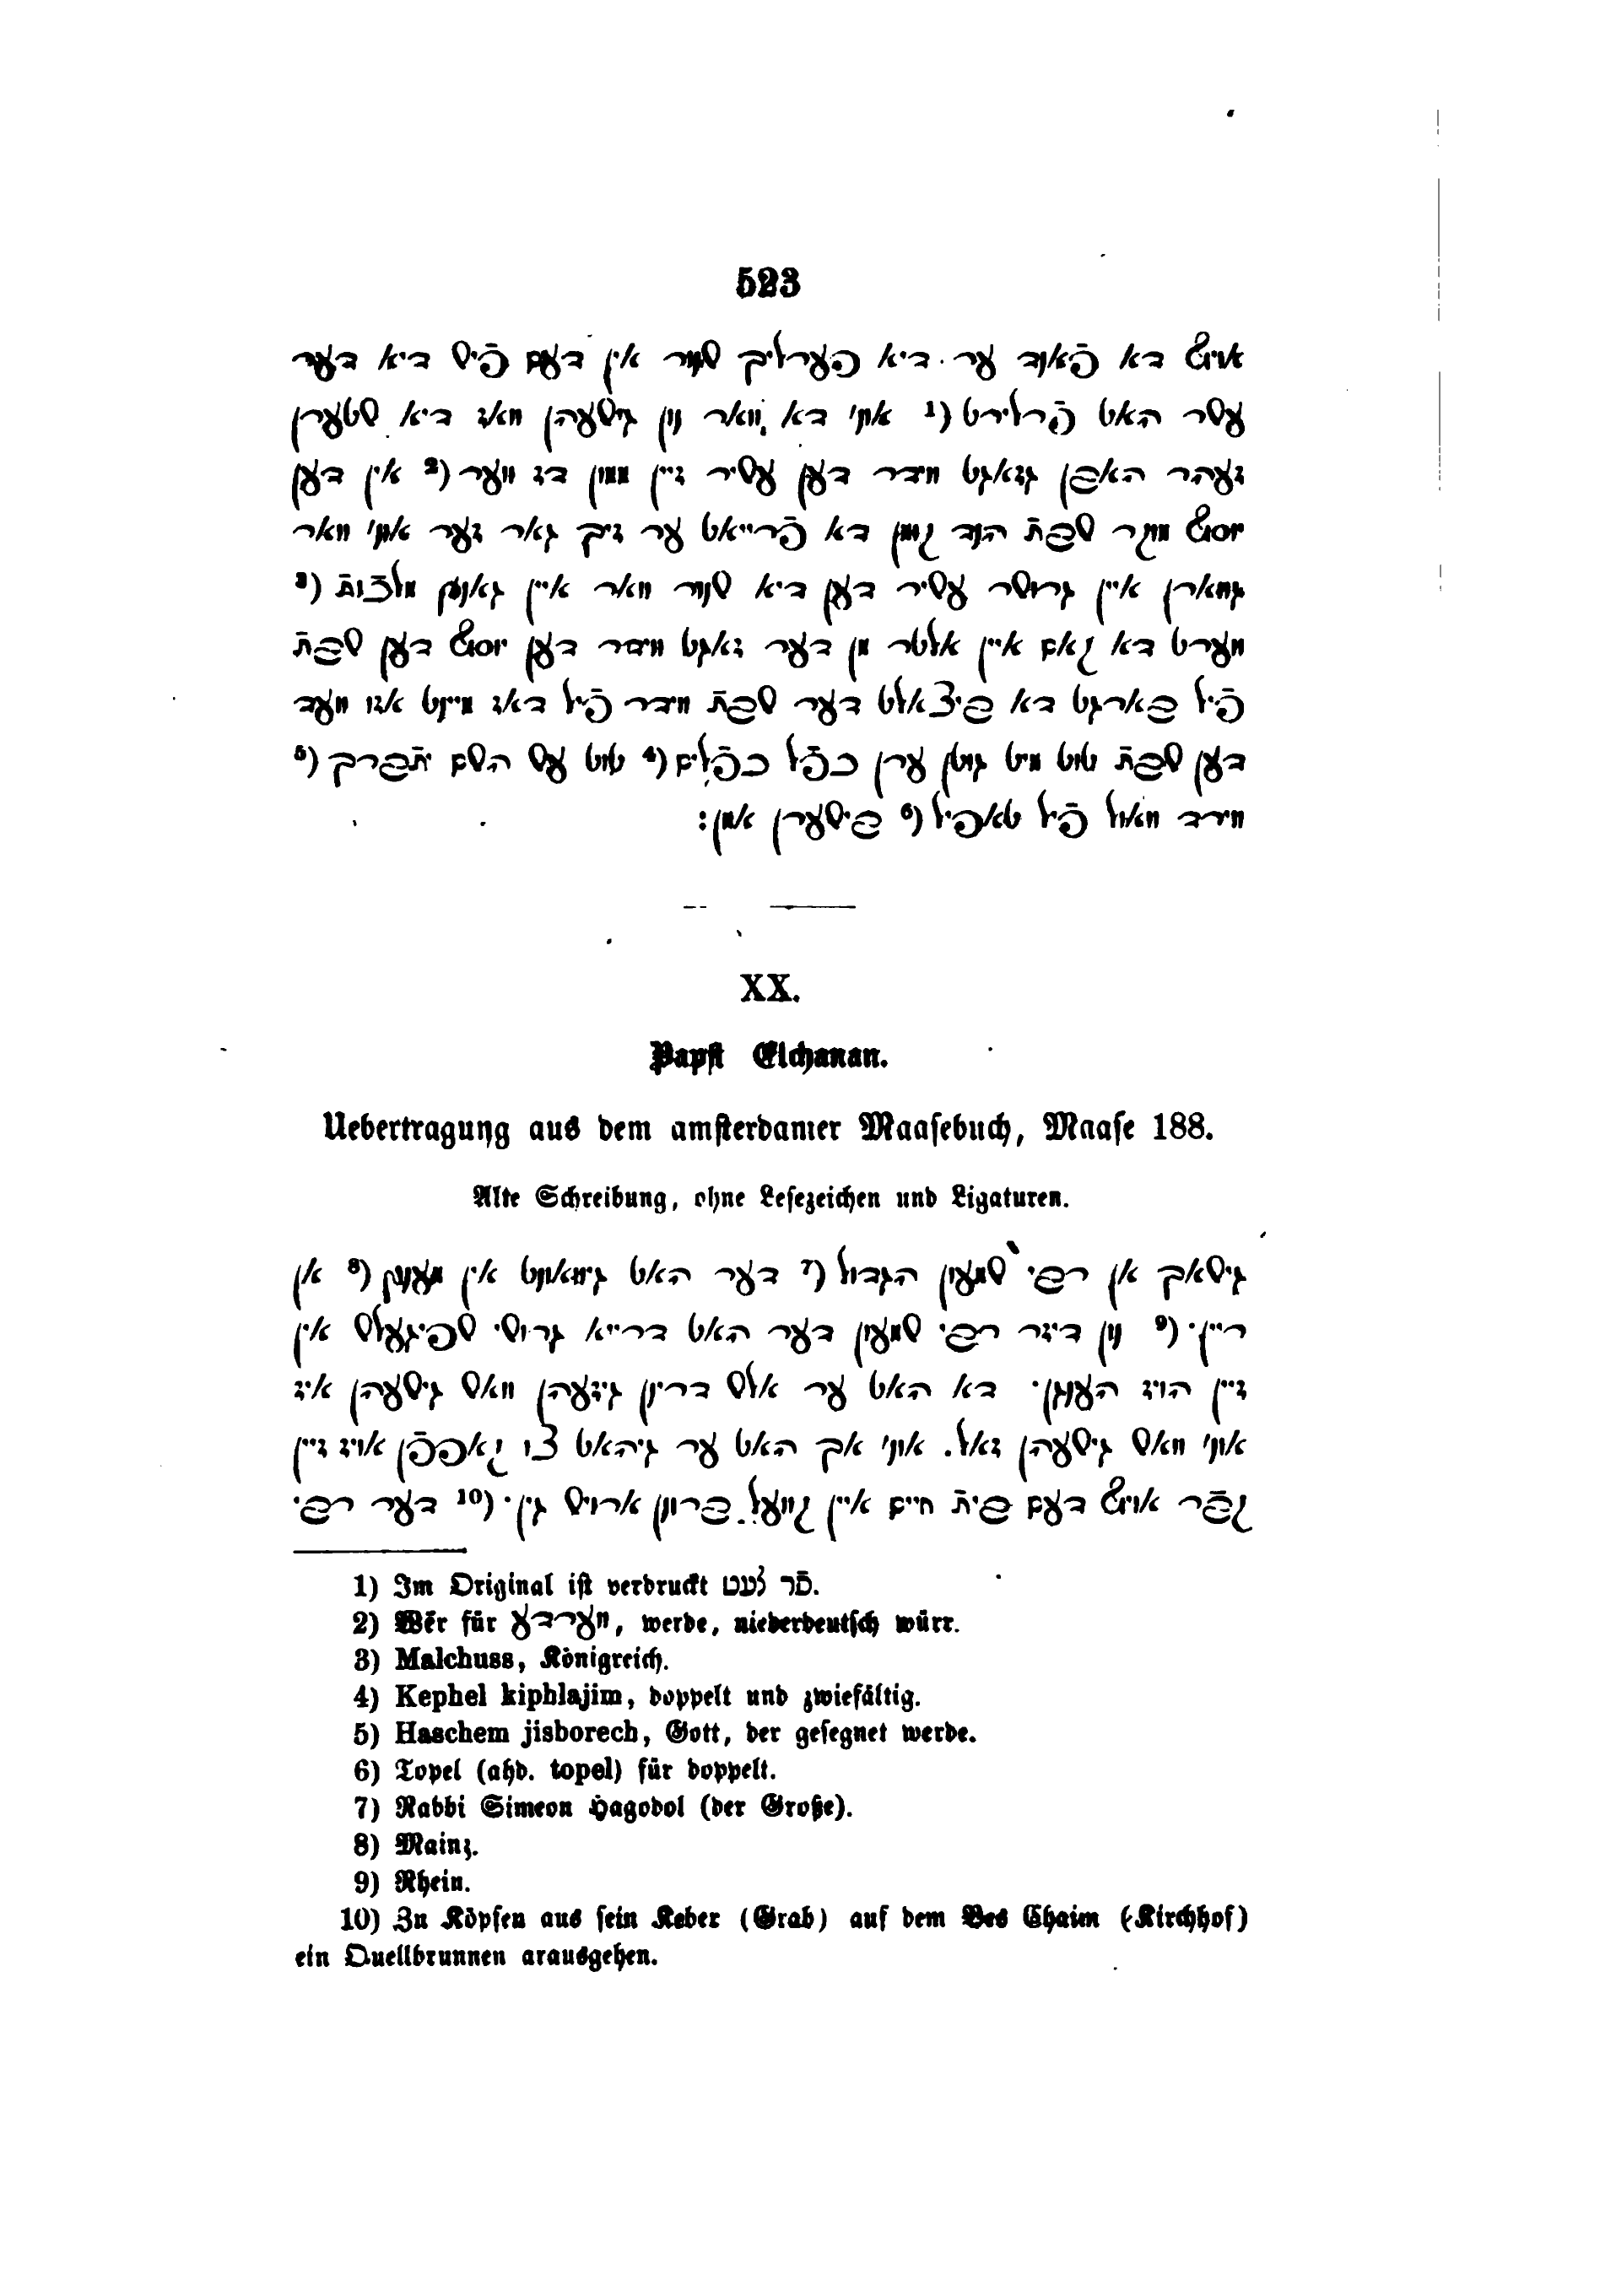 523
אויף דא פֿאנד ער דיא פערליך שנור אין דעם פֿיש דיא דער
עשר האט פֿרלירט (1 אונ' דא וואר נון גישעהן וואז דיא שטערן
זעהר האבן גזאגט ווידר דען עשיר זיין ממון דז ווער (2 אין דען
יוסף מוקר שבת̄ הנד קומן דא פֿרייאט ער זיך גאר זער אונ' וואר
גווארן איין גרושר עשיר דען דיא שנור וואר איין גאנץ מלכות̄ (3
ווערט דא קאם איין אלטר מן דער זאגט ווידר דען יוסף דען שבת̄
פֿיל בארגט דא ביצאלט דער שבת̄ ווידר פֿיל דאז מיינט אזו ווער
דען שבת̄ טוט מיט גוטן ערן כפֿל כפֿלים (4 טוט עש השם ית̄ברך (5
ווידר וואול פֿיל טאפיל (6 בישערן אמן:
XX.
Papst Elchanan.
Uebertragung aus dem amsterdamer Maasebuch, Maase 188.
Alte Schreibung, ohne Lesezeichen und Ligaturen.
גישאך אן רבי שמעון הגדול (7 דער האט גיוואונט אין מענץ (8 אן
ריין· (9 נון דיזר רבי שמעון דער האט דרייא גרושי שפיגעלש אין
זיין הויז הענגן· דא האט ער אלש דרינן גיזעהן וואש גישעהן איז
אונ' וואש גישעהן זאל. אונ' אך האט ער גיהאט צו קאפפֿן אויז זיין
קבֿר אויף דעם בית̄ חיים איין קוועל ברונן ארויש גין· (10 דער רבי
1) Im Original ist verdruckt פֿר לעט.
2) Wēr für ווערדע, werde, niederdeutsch würr.
3) Malchuss, Königreich.
4) Kephel kiphlajim, doppelt und zwiefältig.
5) Haschem jisborech, Gott, der gesegnet werde.
6) Topel (ahd. topel) für doppelt.
7) Rabbi Simeon Hagodol (der Große).
8) Mainz.
9) Rhein.
10) Zu Köpfen aus sein Keber (Grab) auf dem Bes Chaim (Kirchhof)
ein Quellbrunnen arausgehen.